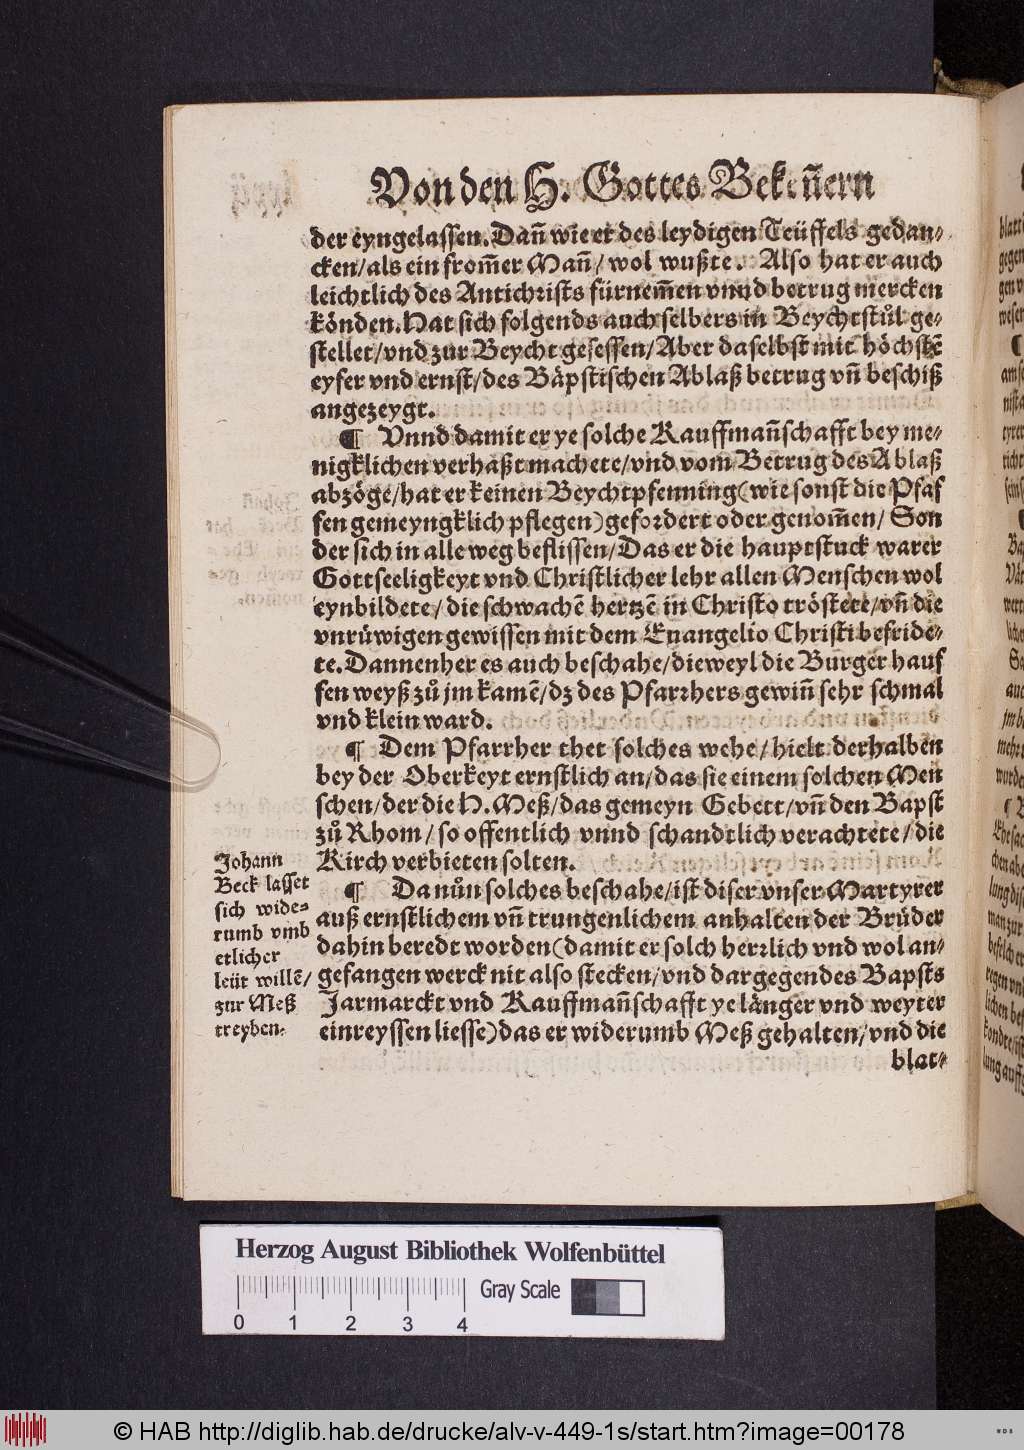 Von den H. Gottes Bekeñern
der eyngelassen. Dañ wie er des leydigen Teüffels gedan-
cken/ als ein from̃er Mañ/ wol wußte. Also hat er auch
leichtlich des Antichrists fürnem̃en vnnd betrug mercken
könden. Hat sich folgends auch selbers in Beychtstůl ge-
stellet/ vnd zur Beycht gesessen/ Aber daselbst mit höchstẽ
eyfer vnd ernst/ des Bäpstischen Ablaß betrug vñ beschiß
angezeygt.
¶ Vnnd damit er ye solche Kauffmañschafft bey me-
nigklichen verhaßt machete/ vnd vom Betrug des Ablaß
abzöge/ hat er keinen Beychtpfenning (wie sonst die Pfaf
fen gemeyngklich pflegen) gefordert oder genom̃en/ Son
der sich in alle weg beflissen/ Das er die hauptstuck warer
Gottseeligkeyt vnd Christlicher lehr allen Menschen wol
eynbildete/ die schwachẽ hertzẽ in Christo tröstete/ vñ die
vnrüwigen gewissen mit dem Euangelio Christi befride-
te. Dannenher es auch beschahe/ dieweyl die Burger hauf
fen weyß zů jm kamẽ/ dz des Pfarrhers gewiñ sehr schmal
vnd klein ward.
¶ Dem Pfarrher thet solches wehe/ hielt derhalben
bey der Oberkeyt ernstlich an/ das sie einem solchen Men
schen/ der die H. Meß/ das gemeyn Gebett/ vñ den Bapst
zů Rhom/ so offentlich vnnd schandtlich verachtete/ die
Kirch verbieten solten.
¶ Da nůn solches beschahe/ ist diser vnser Martyrer
auß ernstlichem vñ trungenlichem anhalten der Brüder
dahin beredt worden (damit er solch herrlich vnd wol an-
gefangen werck nit also stecken/ vnd dargegen des Bapsts
Jarmarckt vnd Kauffmañschafft ye länger vnd weyter
einreyssen liesse) das er widerumb Meß gehalten/ vnd die
blat-
Johann
Beck lasset
sich wide-
rumb vmb
etlicher
leüt willẽ/
zur Meß
treyben.
Herzog August Bibliothek Wolfenbüttel
Gray Scale
0 1 2 3 4
© HAB http://diglib.hab.de/drucke/alv-v-449-1s/start.htm?image=00178